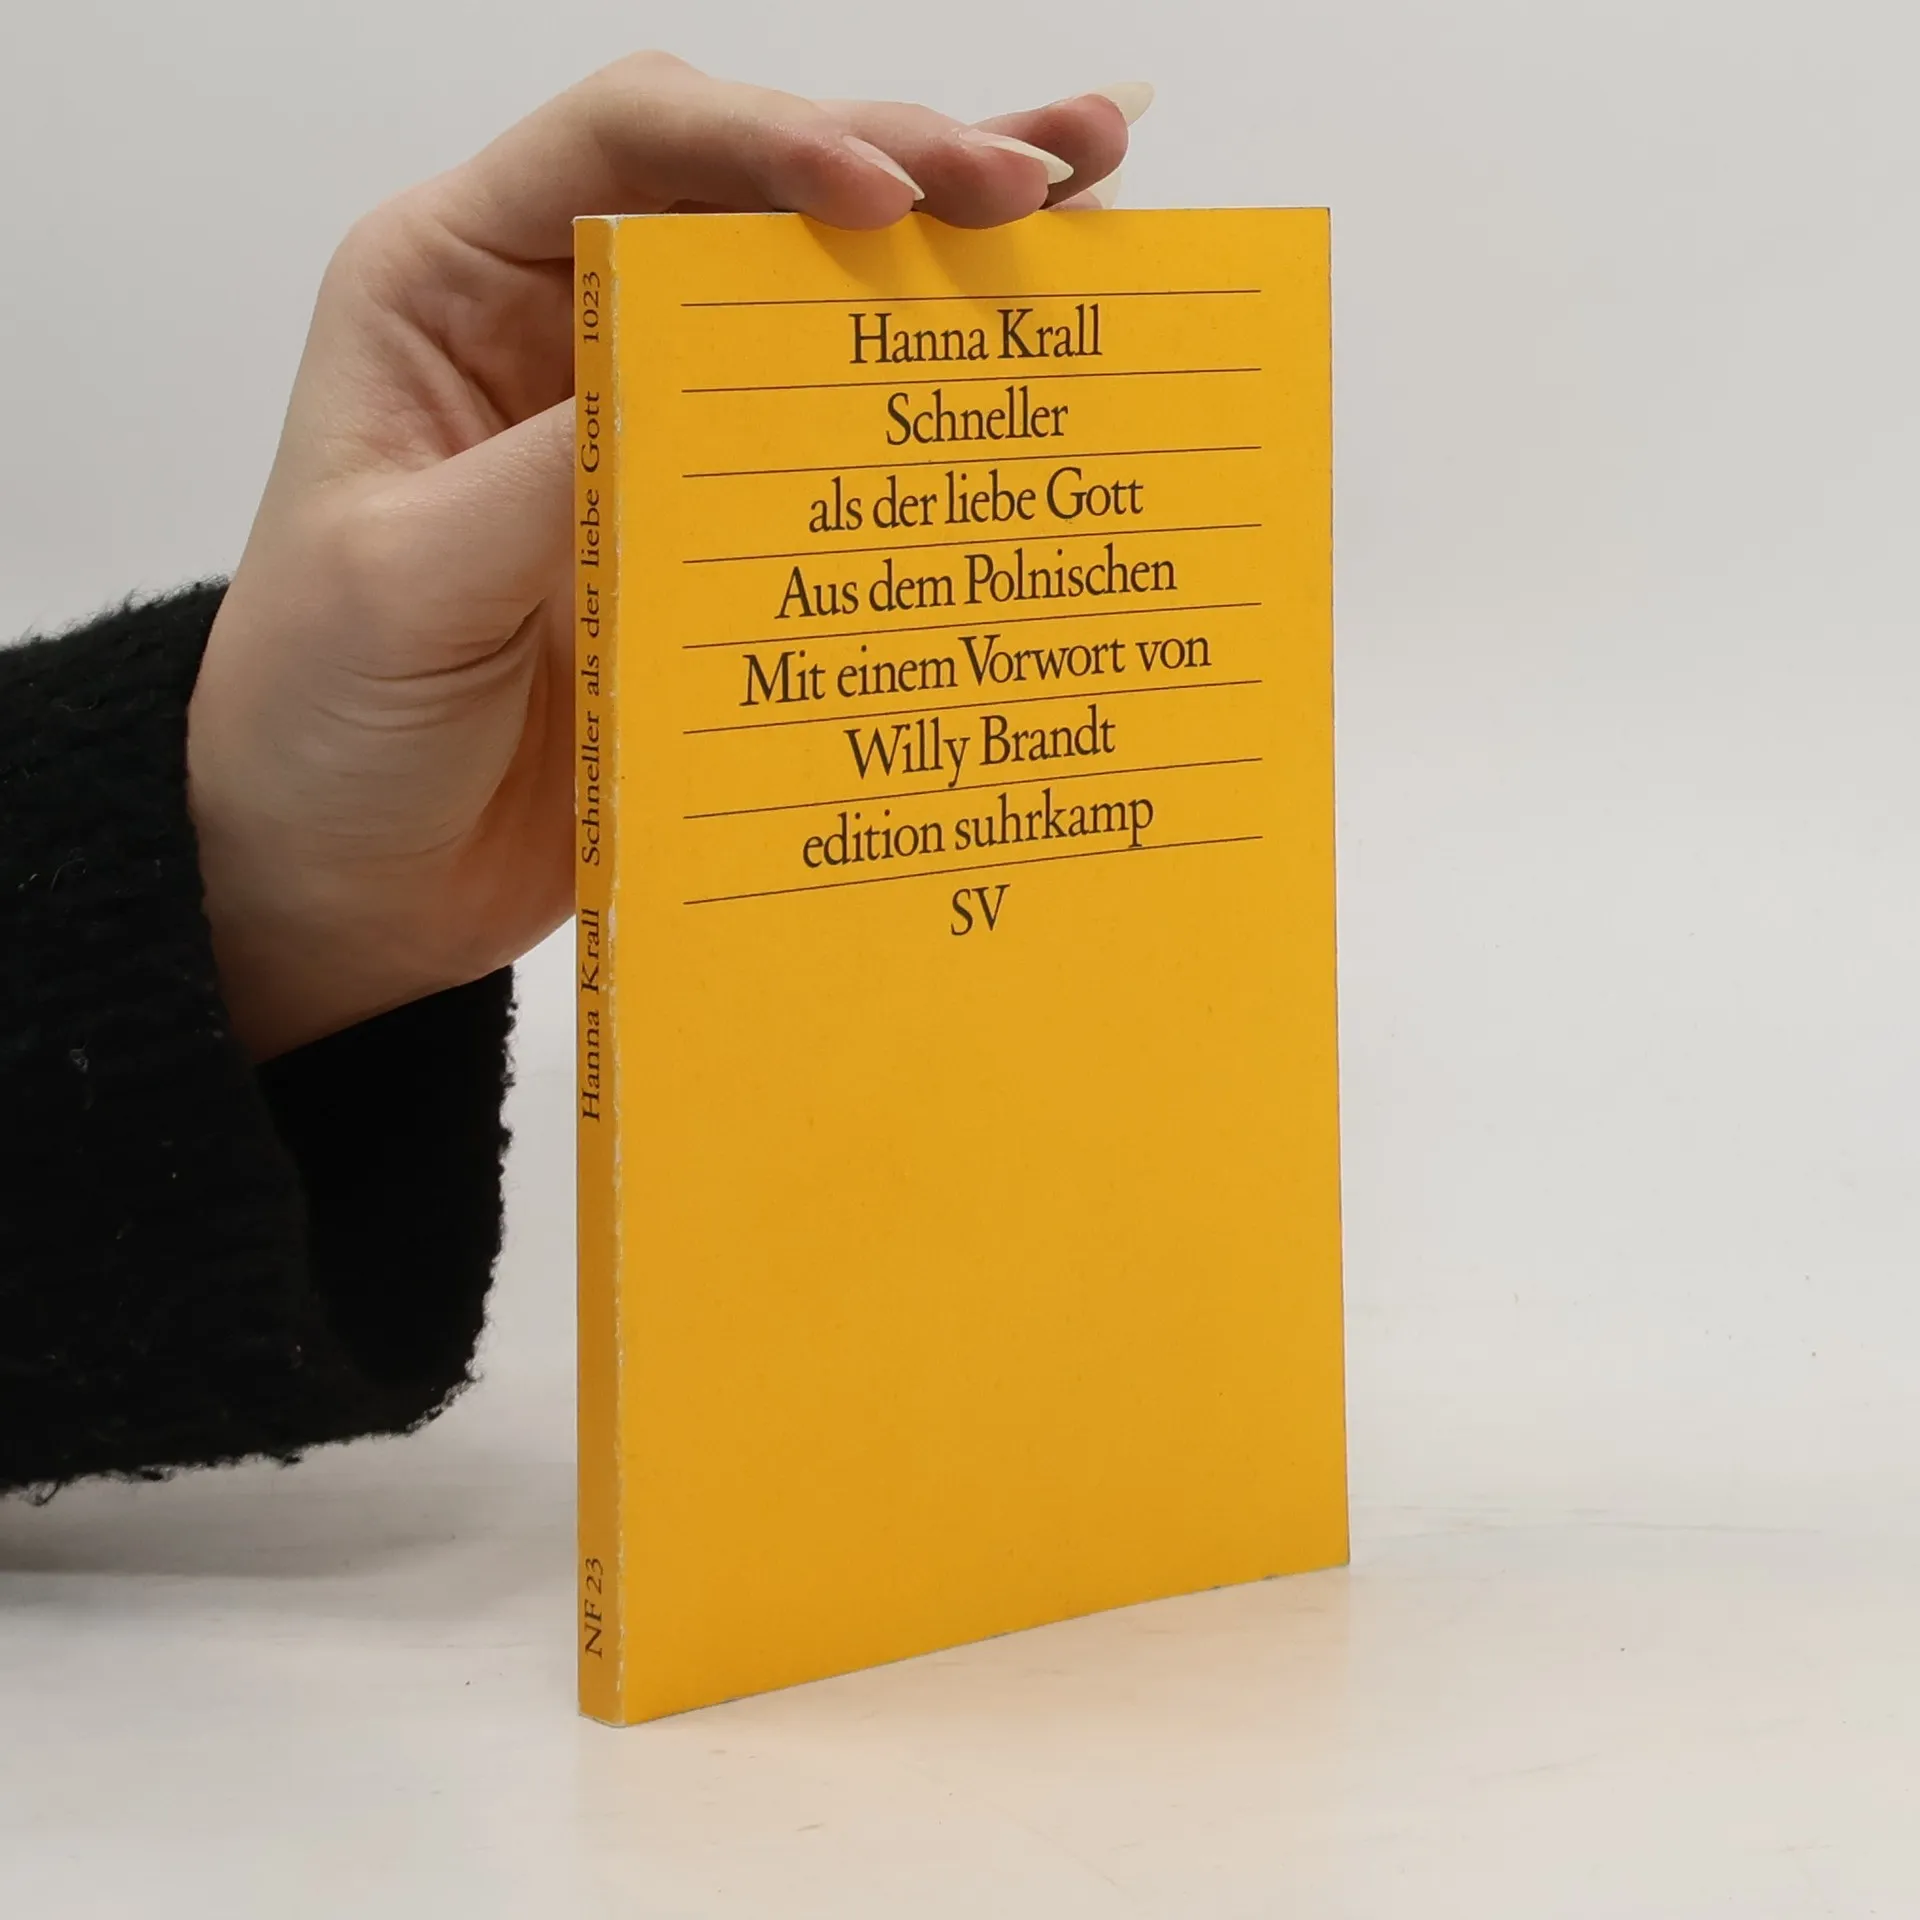 Hanna Krall
Schneller
als der liebe Gott
Aus dem Polnischen
Mit einem Vorwort von
Willy Brandt
edition suhrkamp
SV
Hanna Krall Schneller als der liebe Gott 1023
NF 23